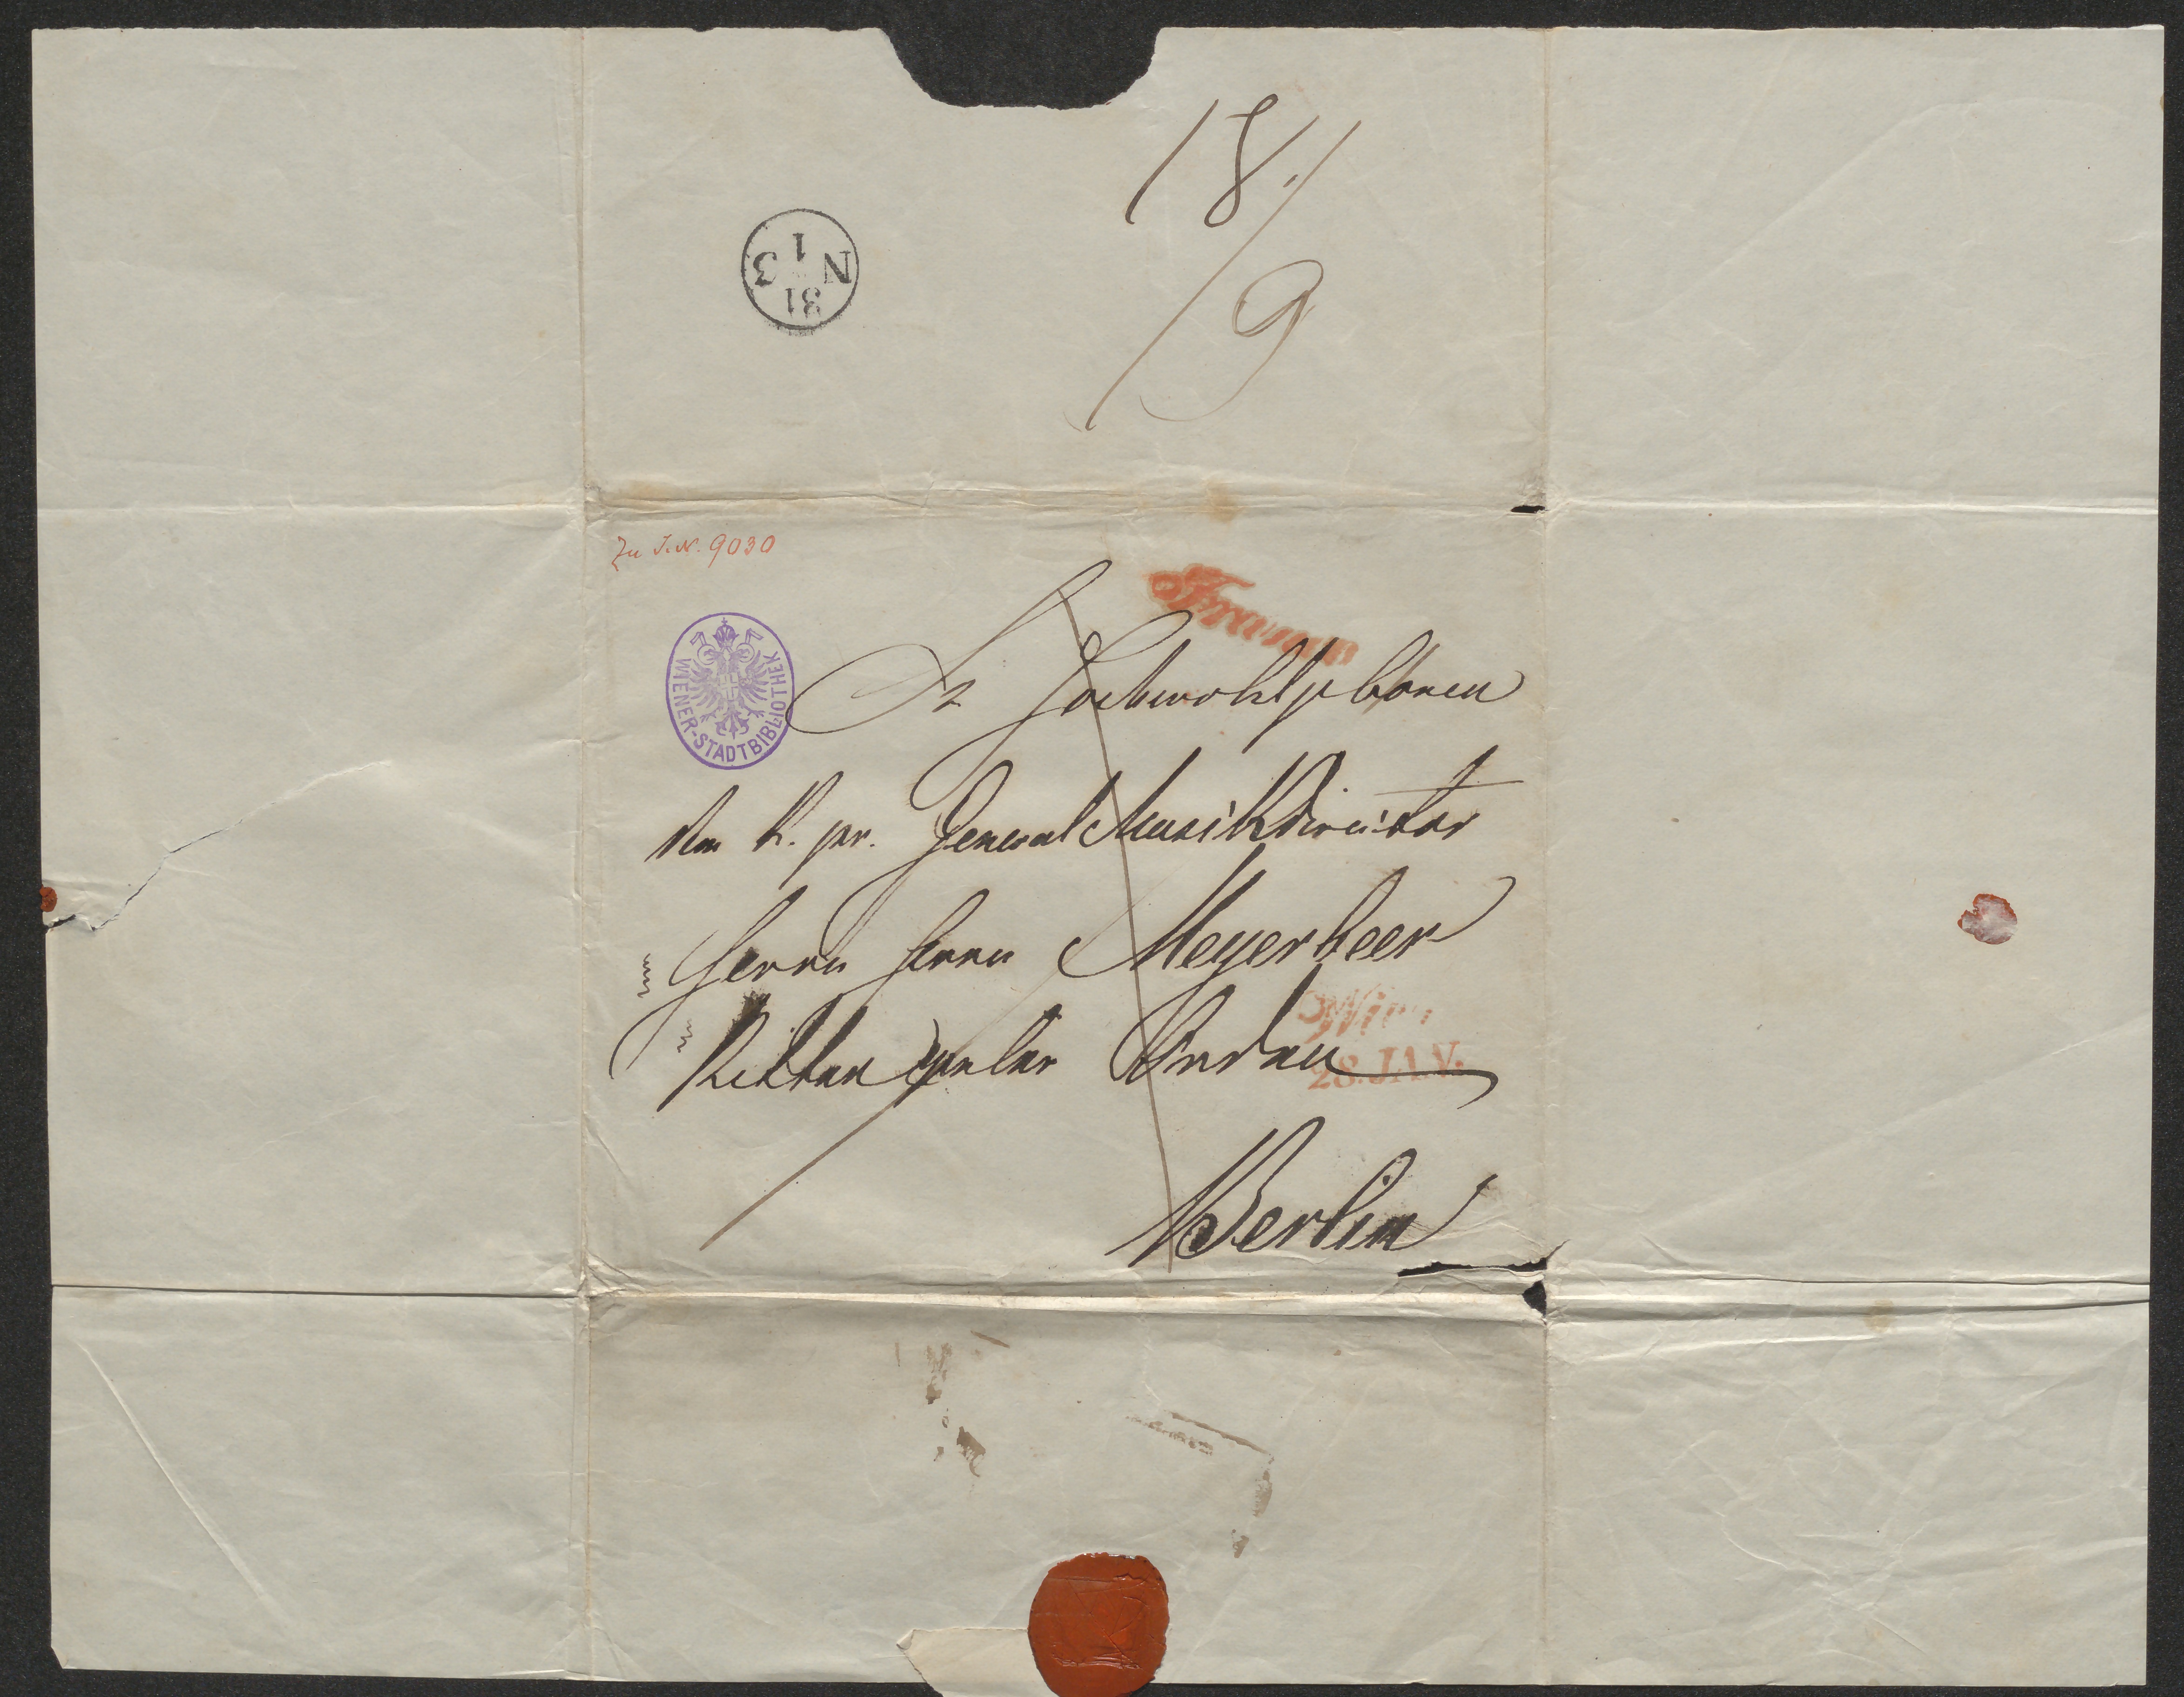 18./9
N 1 3
31
Zu I.N. 9030
Franco
WIENER-STADTBIBLIOTHEK
Sr Hochwohlgeboren
dem K. pr. General Musikdirector
Herrn Herrn Meyerbeer
Ritter vieler Orden
Wien
28. JAN.
Berlin